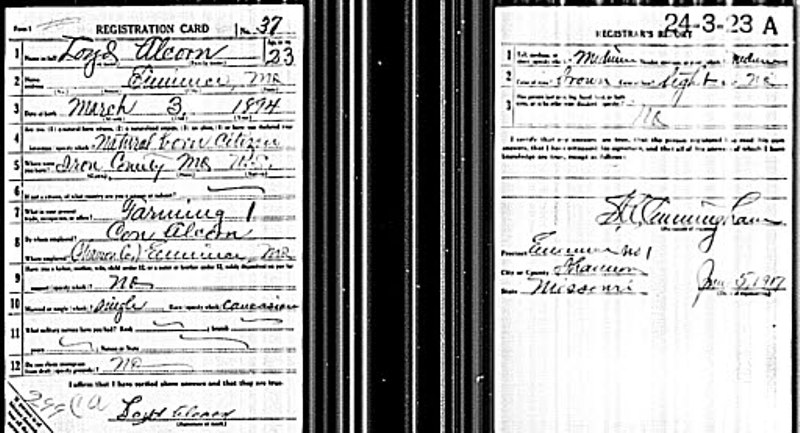 Form 1 REGISTRATION CARD No. 37
1 Name in full Loyd Alcorn Age, in yrs 23
2 Home address Eminence, Mo
3 Date of birth March 3, 1894
4 Are you (1) a natural-born citizen, (2) a naturalized citizen, (3) an alien, (4) or have you declared your
intention (specify which)? Natural born Citizen
5 Where were you born? Iron County Mo U.S.
6 If not a citizen, of what country are you a citizen or subject?
7 What is your present trade, occupation, or office? Farming 1
8 By whom employed? Con Alcorn
Where employed? (Shannon Co.) Eminence, Mo
9 Have you a father, mother, wife, child under 12, or a sister or brother under 12, solely dependent on you for
support (specify which)? no
10 Married or single (which)? single Race (specify which)? Caucasian
11 What military service have you had? Rank ; branch
years ; Nation or State
12 Do you claim exemption from draft (specify grounds)? no
I affirm that I have verified above answers and that they are true.
Loyd Alcorn
(Signature or mark)
24-3-23 A
REGISTRAR'S REPORT
1 Tall, medium, or short (specify which)? Medium Slender, medium, or stout (which)? Medium
2 Color of eyes? Brown Color of hair? Light Bald? No
3 Has person lost arm, leg, hand, foot, or both eyes, or is he otherwise disabled (specify)?
No
I certify that my answers are true, that the person registered has read his own
answers, that I have witnessed his signature, and that all of his answers of which I have
knowledge are true, except as follows:
Cunningham
(Signature of registrar)
Precinct Eminence No 1
City or County Shannon
State Missouri June 5, 1917
(Date of registration)